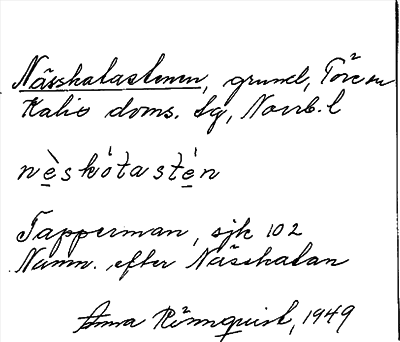 Nässkatastenen, grund, Töre sn
Kalix doms. lg, Norrb. l
nèskátastén
Tapperman, sjk 102
Namn. efter Nässkatan
Anna Rönnquist, 1949